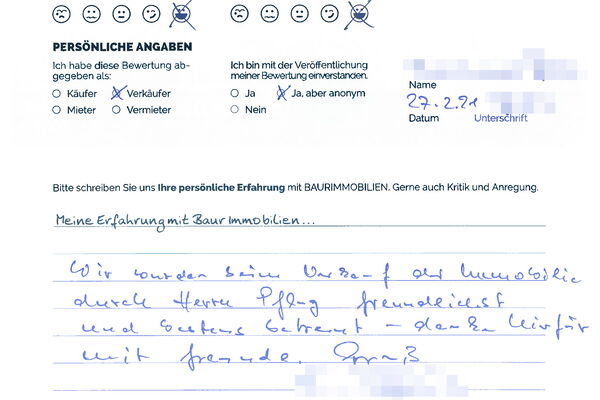 PERSÖNLICHE ANGABEN
Ich habe diese Bewertung ab-
gegeben als:
Käufer Verkäufer
Mieter Vermieter
Ich bin mit der Veröffentlichung
meiner Bewertung einverstanden.
Ja Ja, aber anonym
Nein
Name
27.2.21
Datum Unterschrift
Bitte schreiben Sie uns Ihre persönliche Erfahrung mit BAURIMMOBILIEN. Gerne auch Kritik und Anregung.
Meine Erfahrung mit Baur Immobilien...
Wir wurden beim Verkauf der Immobilie
durch Herrn Pflug freundlichst
und bestens betreut – danke hierfür
mit freundl. Gruß